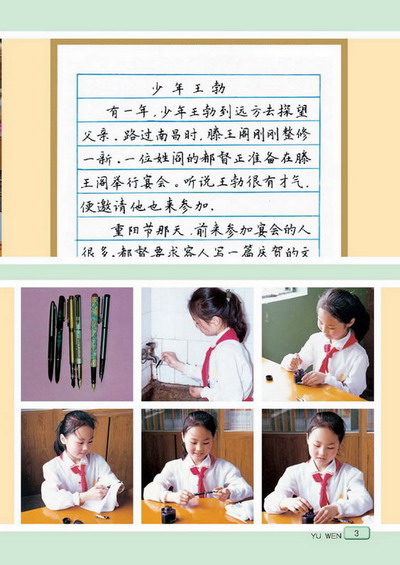 少年王勃
有一年，少年王勃到远方去探望
父亲，路过南昌时，滕王阁刚刚整修
一新，一位姓阎的都督正准备在滕
王阁举行宴会。听说王勃很有才气，
便邀请他也来参加。
重阳节那天，前来参加宴会的人
很多，都督要求客人写一篇庆贺的文
YU WEN 3